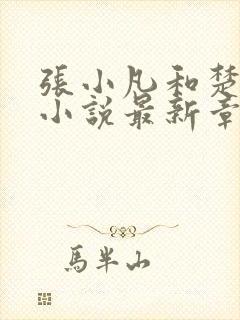 張小凡和楚
小說最新章
馬半山